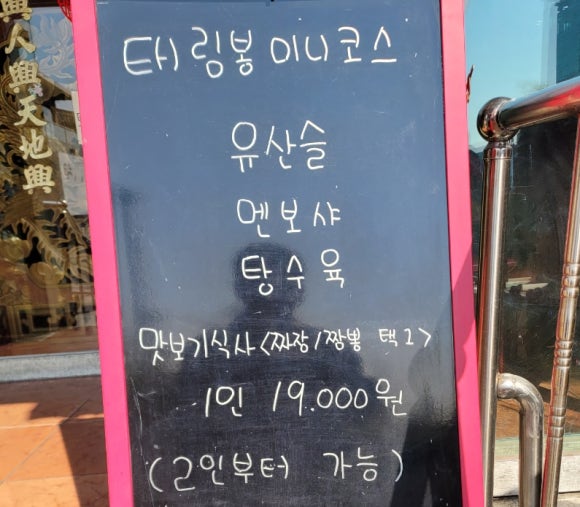 태림봉 미니코스
유산슬
멘보샤
탕수육
맛보기식사<짜장/짬뽕 택1>
1인 19.000원
(2인부터 가능)
興人興天地興